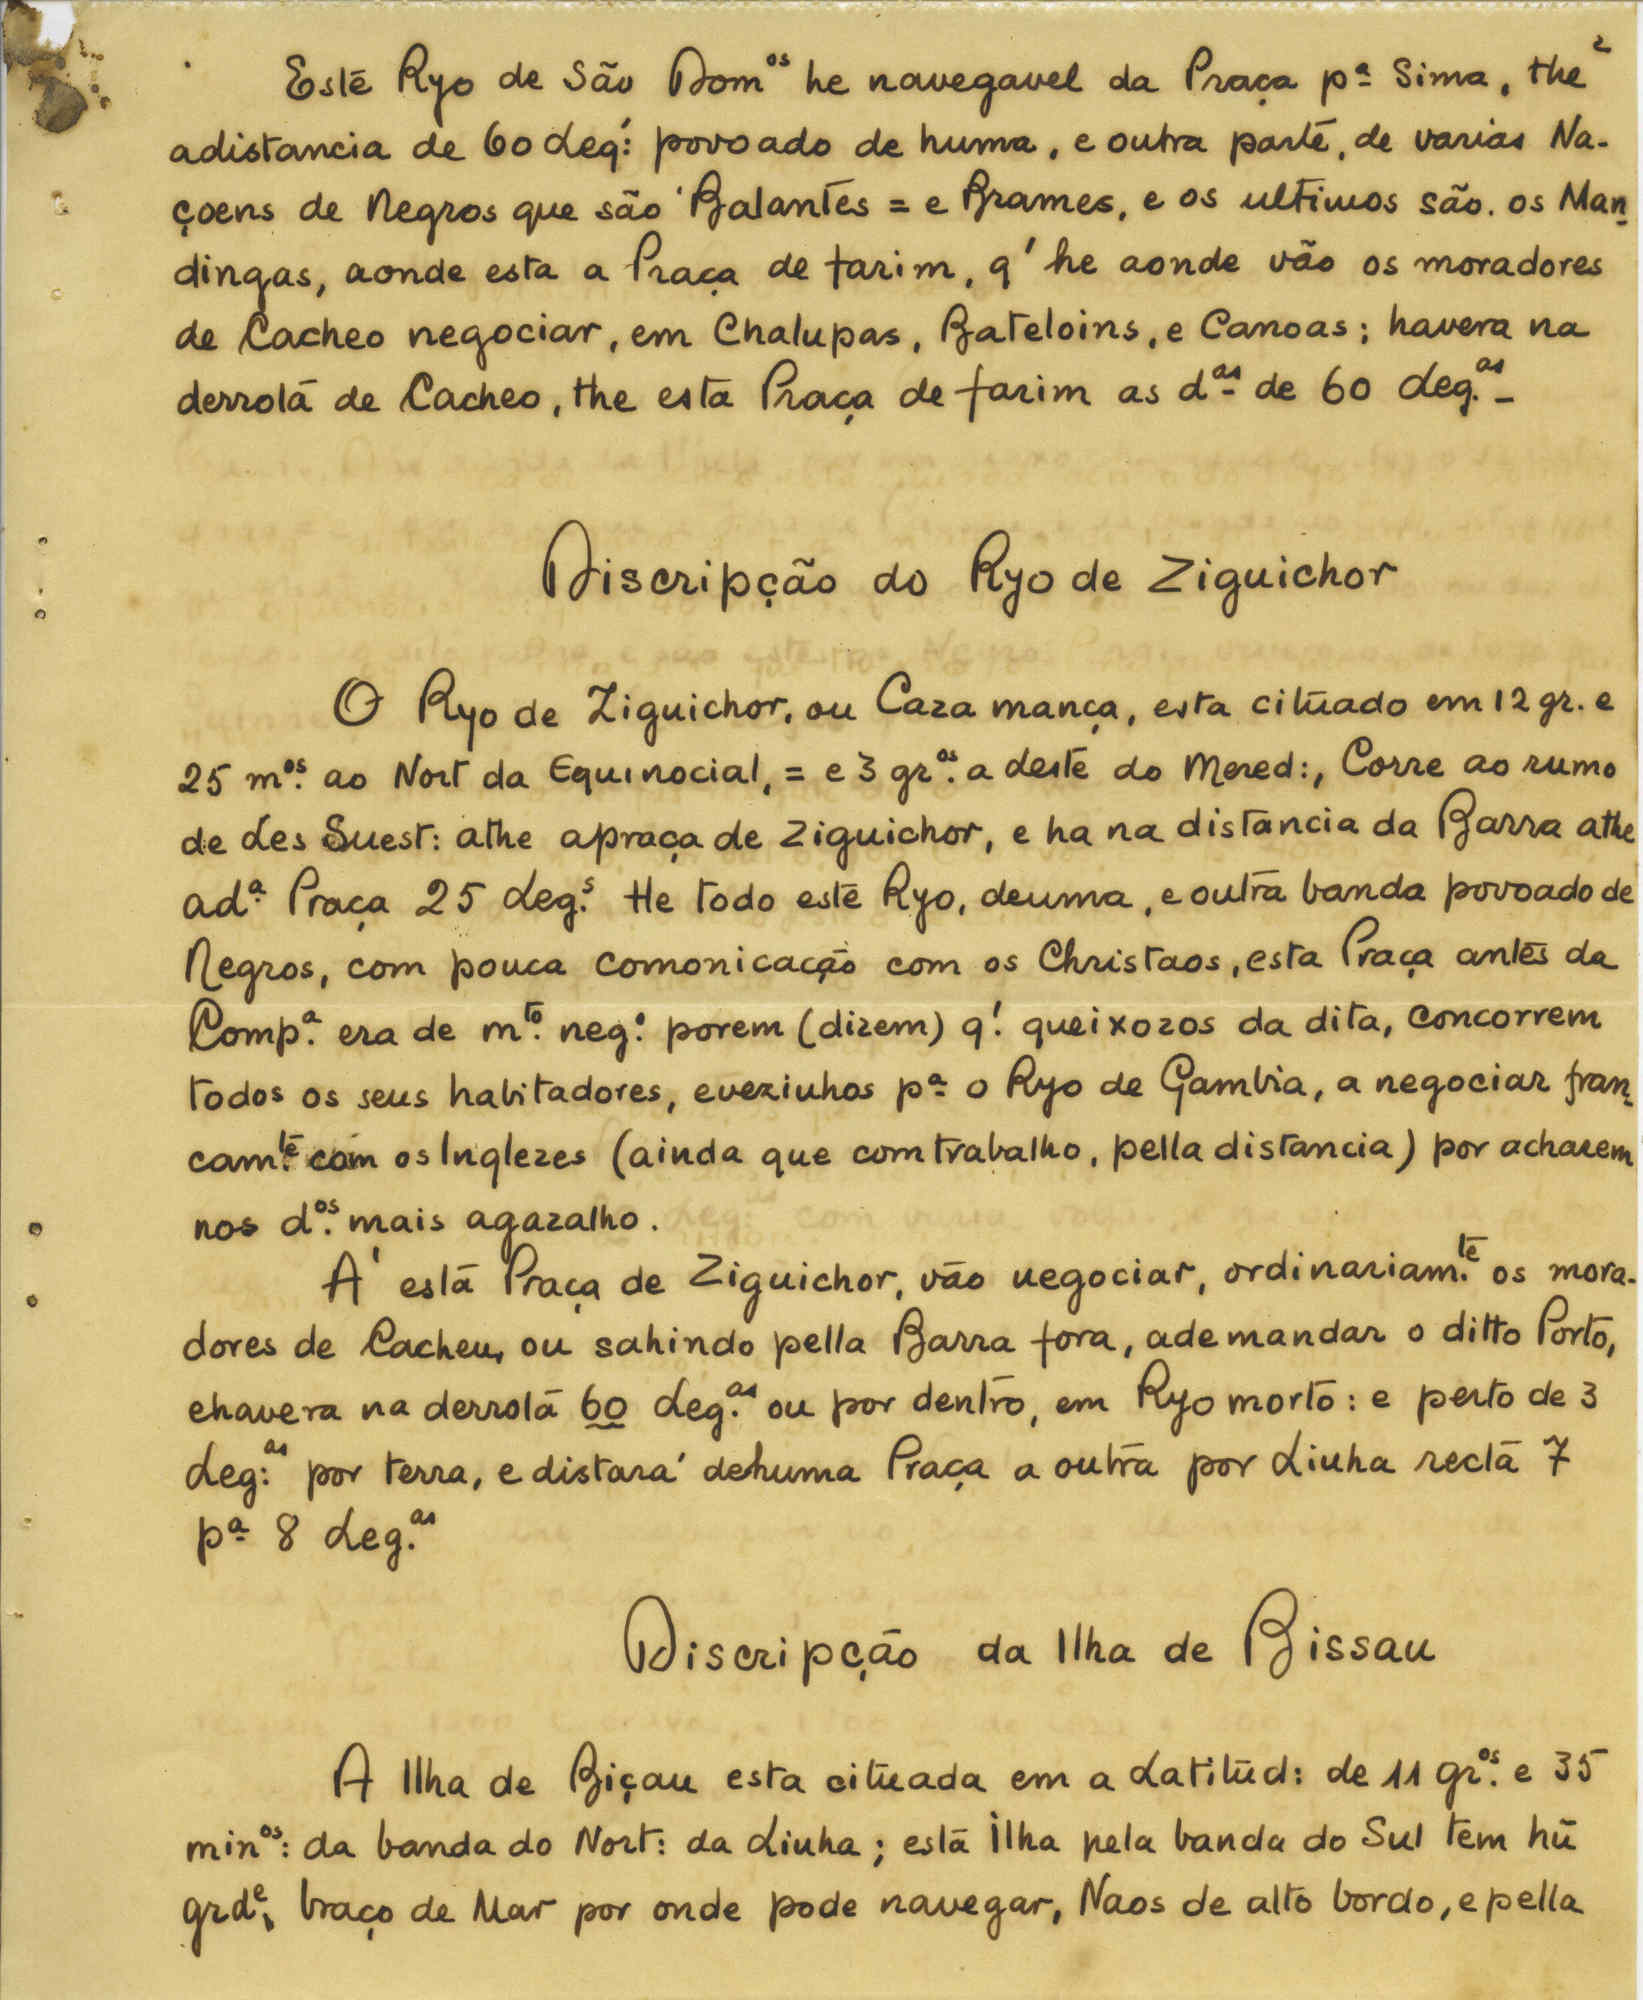 2
Este Ryo de São Dom.os he navegavel da Praça p.a Sima, the
adistancia de 60 Leg: povoado de huma, e outra parte, de varias Na-
çoens de Negros que são Balantes = e Brames, e os ultimos são. os Man-
dingas, aonde esta a Praça de farim, q' he aonde vão os moradores
de Cacheo negociar, em Chalupas, Bateloins, e Canoas; havera na
derrota de Cacheo, the esta Praça de farim as d.as de 60 Leg.as –
Discripção do Ryo de Ziguichor
O Ryo de Ziguichor, ou Caza mança, esta cituado em 12 gr. e
25 m.os ao Nort da Equinocial, = e 3 gr.os a deste do Mered:, Corre ao rumo
de Les Suest: athe apraça de Ziguichor, e ha na distancia da Barra athe
ad.a Praça 25 Leg.s He todo este Ryo, deuma, e outra banda povoado de
Negros, com pouca comonicação com os Christaos, esta Praça antes da
Comp.a era de m.to neg.o porem (dizem) q'. queixozos da dita, concorrem
todos os seus habitadores, evezinhos p.a o Ryo de Gambia, a negociar fran-
cam.te com os Inglezes (ainda que com trabalho, pella distancia) por acharem
nos d.os mais agazalho.
A' esta Praça de Ziguichor, vão negociar, ordinariam.te os mora-
dores de Cacheu, ou sahindo pella Barra fora, ademandar o ditto Porto,
ehavera na derrota 60 Leg.as ou por dentro, em Ryo morto: e perto de 3
Leg:as por terra, e distara' dehuma Praça a outra por Linha recta 7
p.a 8 Leg.as
Discripção da Ilha de Bissau
A Ilha de Biçau esta cituada em a Latitud: de 11 gr.os e 35
min.os: da banda do Nort: da Linha; esta Ilha pela banda do Sul tem hū
grd.e braço de Mar por onde pode navegar, Naos de alto bordo, e pella